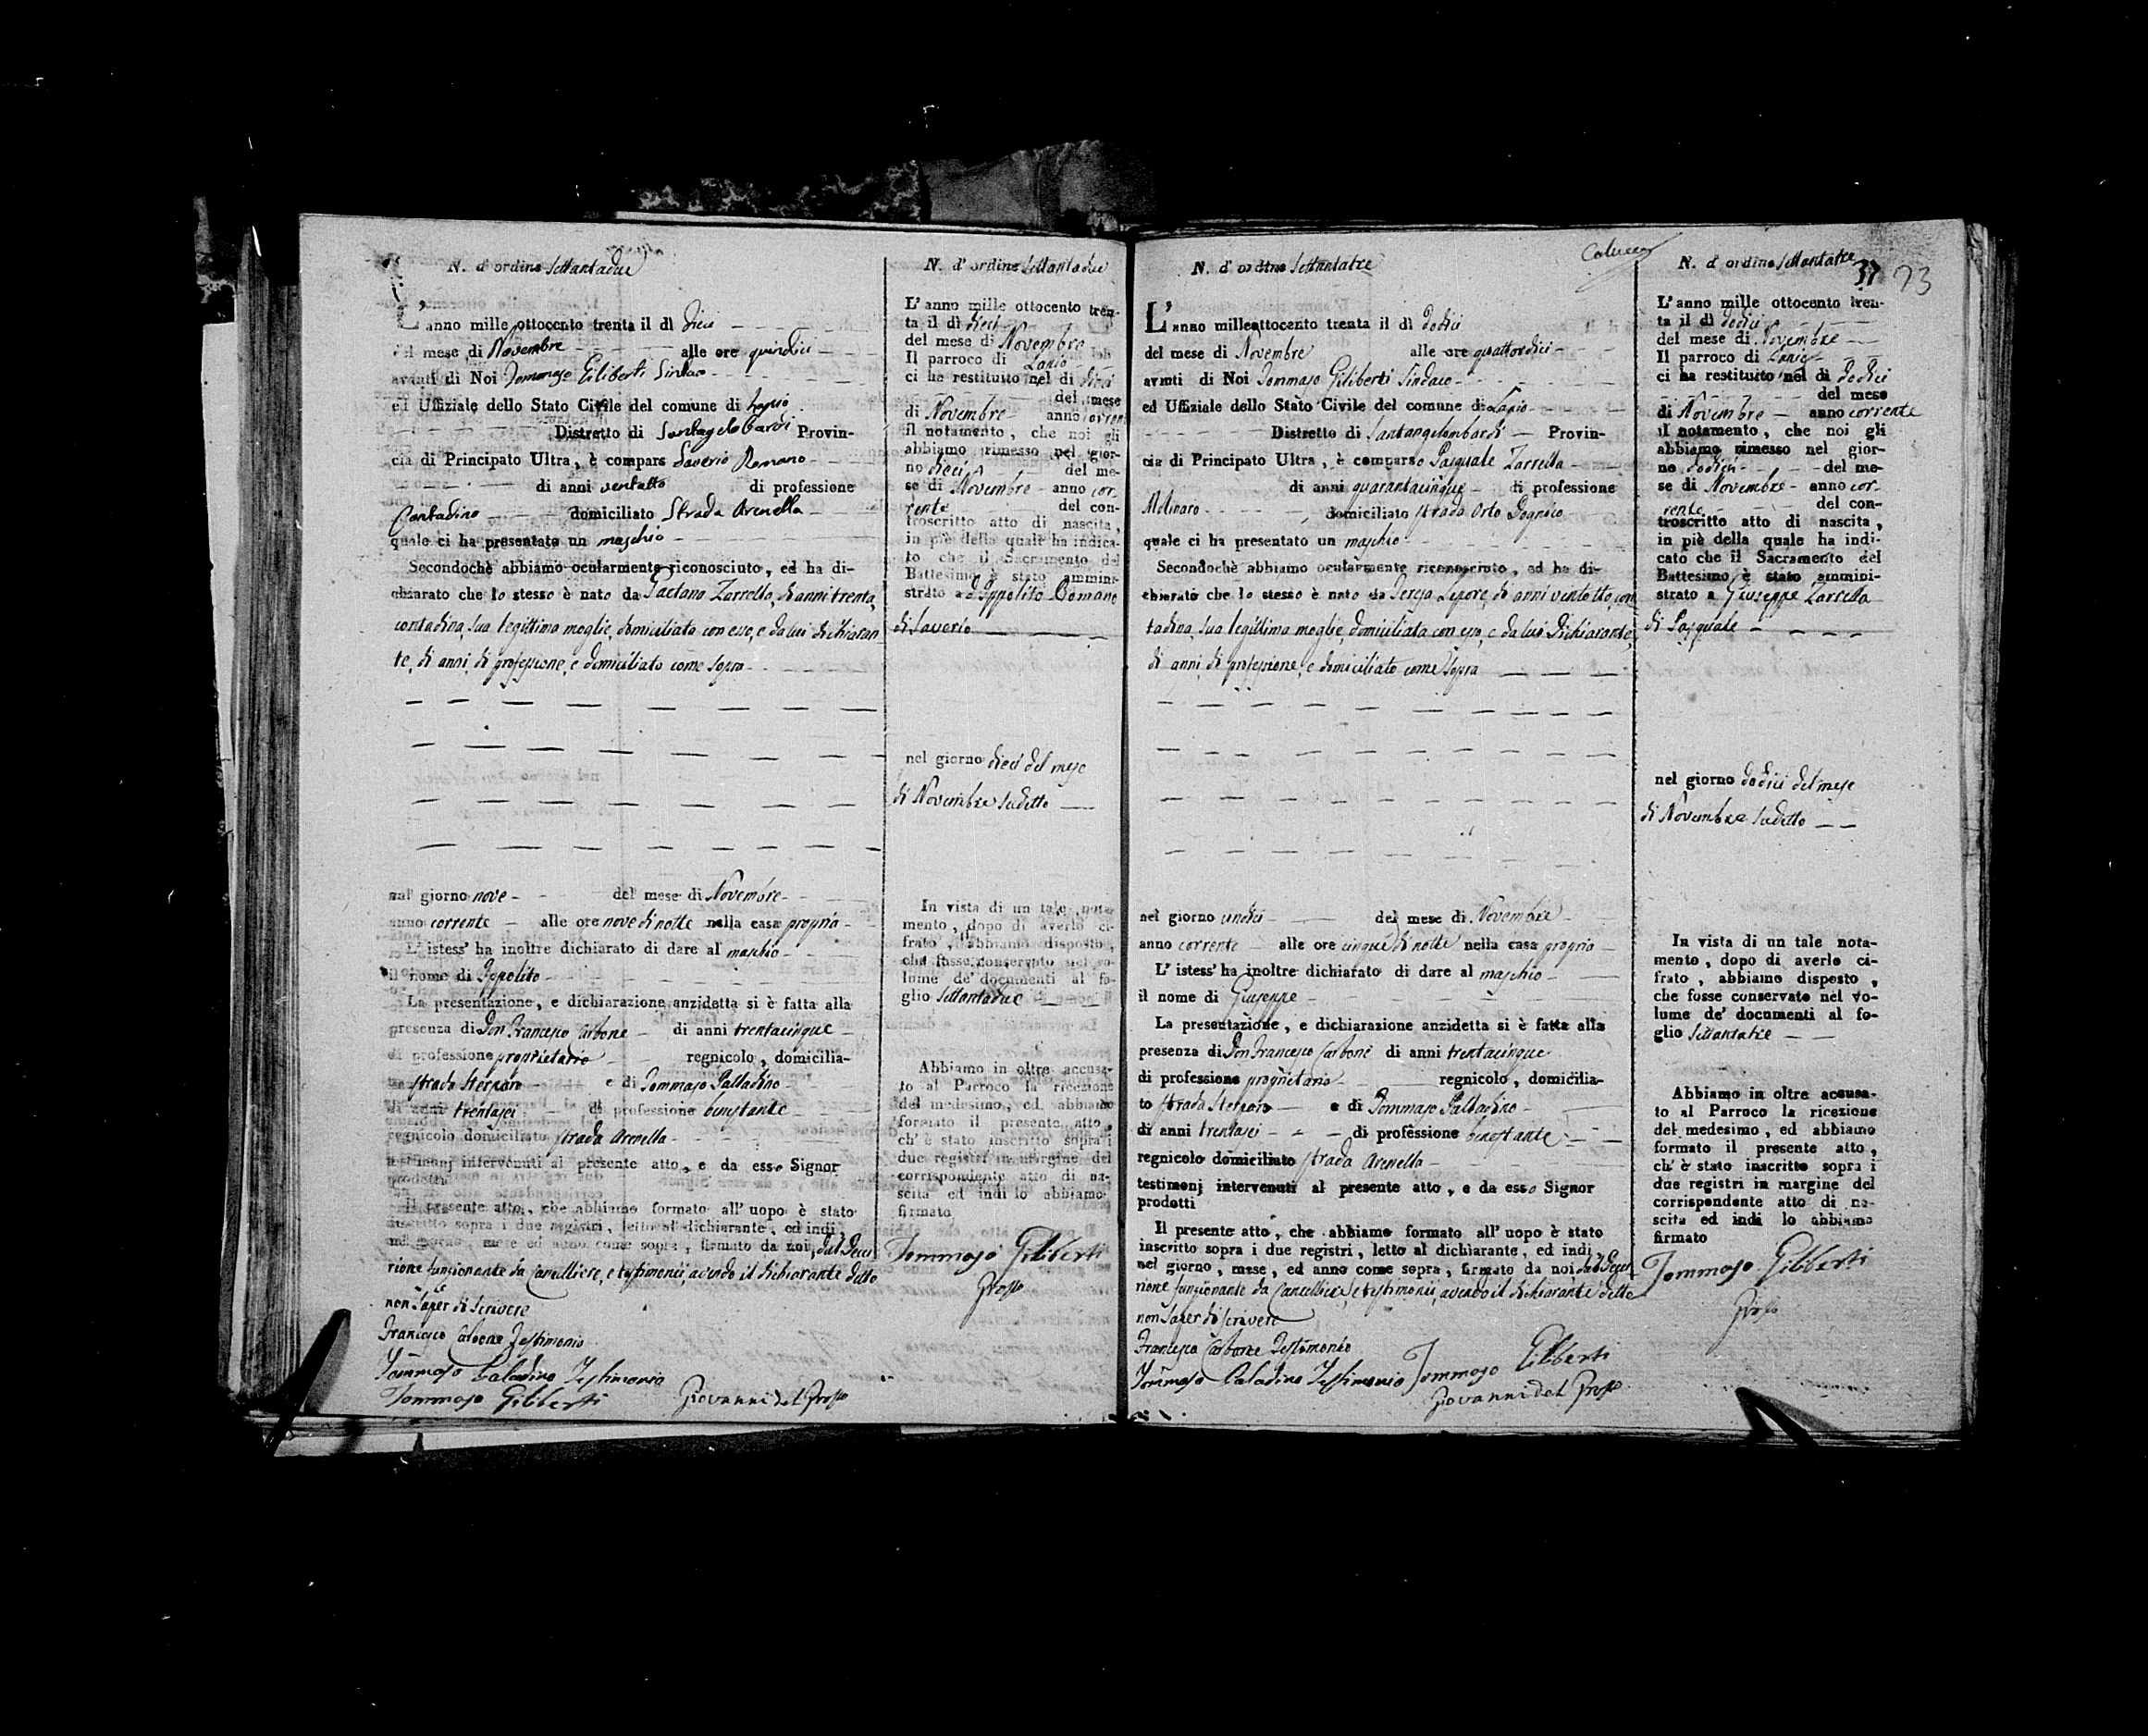 N. d'ordine Settantadue
L'anno mille ottocento trenta il dì dieci
del mese di Novembre alle ore quindici
avanti di Noi Tommaso Giliberti Sindaco
ed Uffiziale dello Stato Civile del comune di Lapio
Distretto di Santangelobardi Provin-
cia di Principato Ultra, è compars Saverio Romano
di anni ventotto di professione
Contadino domiciliato Strada Arenella
quale ci ha presentato un maschio
Secondochè abbiamo ocularmente riconosciuto, ed ha di-
chiarato che lo stesso è nato da Gaetana Zarrella, di anni trenta,
contadina, sua legittima moglie, domiciliata con esso, e da lui dichiaran
te, di anni, di professione, e domiciliato come sopra
nel giorno nove del mese di Novembre
anno corrente alle ore nove di notte nella casa propria
L'istess' ha inoltre dichiarato di dare al maschio
il nome di Ippolito
La presentazione, e dichiarazione anzidetta si è fatta alla
presenza di Don Francesco Carbone di anni trentacinque
di professione proprietario regnicolo, domicilia-
to strada Sterparo e di Tommaso Palladino
di anni trentasei di professione benestante
regnicolo domiciliato strada Arenella
testimonj intervenuti al presente atto, e da esso Signor
prodotti
Il presente atto, che abbiamo formato all'uopo è stato
inscritto sopra i due registri, letto al dichiarante, ed indi
nel giorno, mese ed anno come sopra, firmato da noi, dal Decu
rione funzionante da Cancelliere, e testimonii, avendo il dichiarante detto
non saper di scrivere
Francesco Carbone Testimonio
Tommaso Paladino Testimonio
Tommaso Giliberti Giovanni del Grosso
N. d'ordine Settantadue
L'anno mille ottocento tren-
ta il dì dieci
del mese di Novembre
Il parroco di Lapio
ci ha restituito nel di dieci
del mese
di Novembre anno corren
il notamento, che noi gli
abbiamo rimesso nel gior-
no dieci del me-
se di Novembre anno cor-
rente del con-
troscritto atto di nascita,
in piè della quale ha indica-
to che il Sacramento del
Battesimo è stato ammini-
strato a Ippolito Romano
di Saverio
nel giorno dieci del mese
di Novembre sudetto
In vista di un tale nota-
mento, dopo di averlo ci-
frato, abbiamo disposto,
che fosse conservato nel vo-
lume de' documenti al fo-
glio Settantadue
Abbiamo in oltre accusa-
to al Parroco la ricezione
del medesimo, ed abbiamo
formato il presente atto,
ch'è stato inscritto sopra i
due registri in margine del
corrispondente atto di na-
scita ed indi lo abbiamo
firmato
Tommaso Giliberti
Grosso
N. d'ordine Settantatre
L'anno milleottocento trenta il dì dodici
del mese di Novembre alle ore quattordici
avanti di Noi Tommaso Giliberti Sindaco
ed Uffiziale dello Stato Civile del comune di Lapio
Distretto di Santangelombardi Provin-
cia di Principato Ultra, è comparso Pasquale Zarrella
di anni quarantacinque di professione
Molinaro domiciliato strada Orto
quale ci ha presentato un maschio
Secondochè abbiamo ocularmente riconosciuto, ed ha di-
chiarato che lo stesso è nato da Teresa Lepore, di anni ventotto, con
tadina, sua legittima moglie, domiciliata con esso, e da lui Dichiarante,
di anni, di professione, e domiciliato come sopra
nel giorno undici del mese di Novembre
anno corrente alle ore cinque di notte nella casa propria
L'istess' ha inoltre dichiarato di dare al maschio
il nome di Giuseppe
La presentazione, e dichiarazione anzidetta si è fatta alla
presenza di Don Francesco Carbone di anni trentacinque
di professione proprietario regnicolo, domicilia-
to strada Sterparo e di Tommaso Palladino
di anni trentasei di professione benestante
regnicolo domiciliato strada Arenella
testimonj intervenuti al presente atto, e da esso Signor
prodotti
Il presente atto, che abbiamo formato all'uopo è stato
inscritto sopra i due registri, letto al dichiarante, ed indi
nel giorno, mese, ed anno come sopra, firmato da noi dal Decu
rione funzionante da Cancelliere, e testimonii, avendo il dichiarante detto
non saper di scrivere
Francesco Carbone Testimonio
Tommaso Paladino Testimonio Tommaso Giliberti
Giovanni del Grosso
N. d'ordine Settantatre
37 73
L'anno mille ottocento tren-
ta il dì dodici
del mese di Novembre
Il parroco di Lapio
ci ha restituito nel di dodici
del mese
di Novembre anno corrente
il notamento, che noi gli
abbiamo rimesso nel gior-
no dodici del me-
se di Novembre anno cor-
rente del con-
troscritto atto di nascita,
in piè della quale ha indi-
cato che il Sacramento del
Battesimo è stato ammini-
strato a Giuseppe Zarrella
di Pasquale
nel giorno dodici del mese
di Novembre sudetto
In vista di un tale nota-
mento, dopo di averlo ci-
frato, abbiamo disposto,
che fosse conservato nel vo-
lume de' documenti al fo-
glio Settantatre
Abbiamo in oltre accusa-
to al Parroco la ricezione
del medesimo, ed abbiamo
formato il presente atto,
ch'è stato inscritto sopra i
due registri in margine del
corrispondente atto di na-
scita ed indi lo abbiamo
firmato
Tommaso Giliberti
Grosso